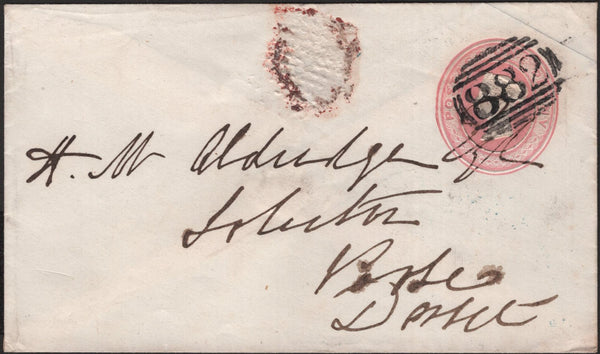 882
H. M Aldridge Esq
Solicitor
Poole
Dorset